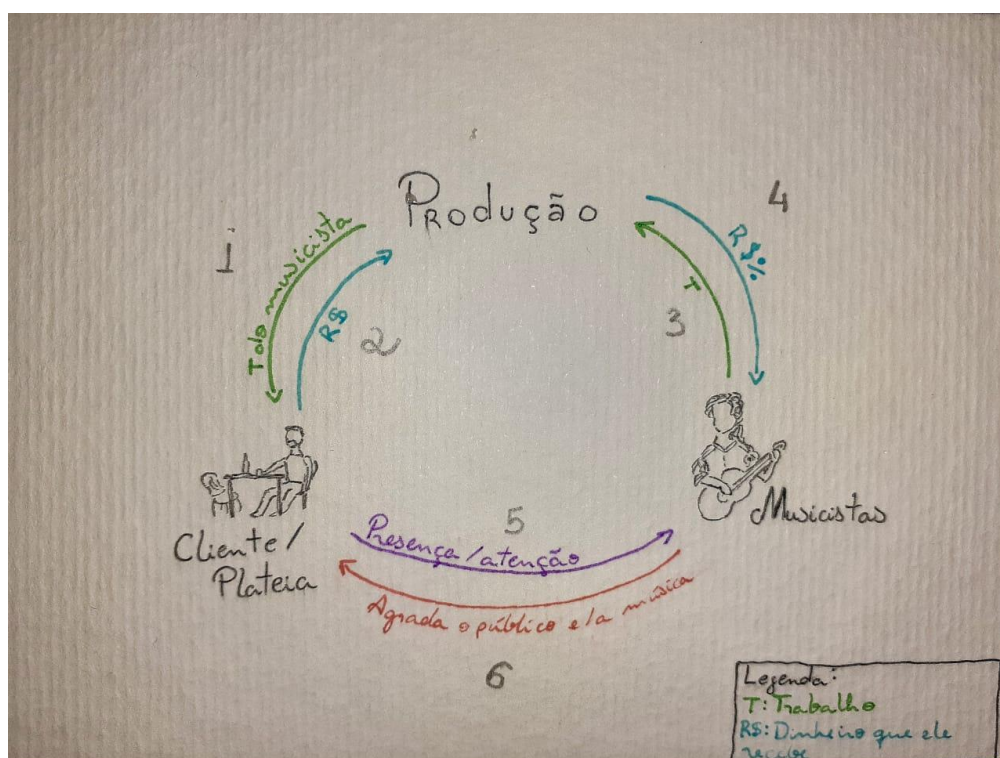 Produção
1
T do musicista
R$
2
T
3
R$%
4
Cliente/
Plateia
Musicistas
5
Presença/atenção
Agrada o público e/a música
6
Legenda:
T: Trabalho
R$: Dinheiro que ele
recebe